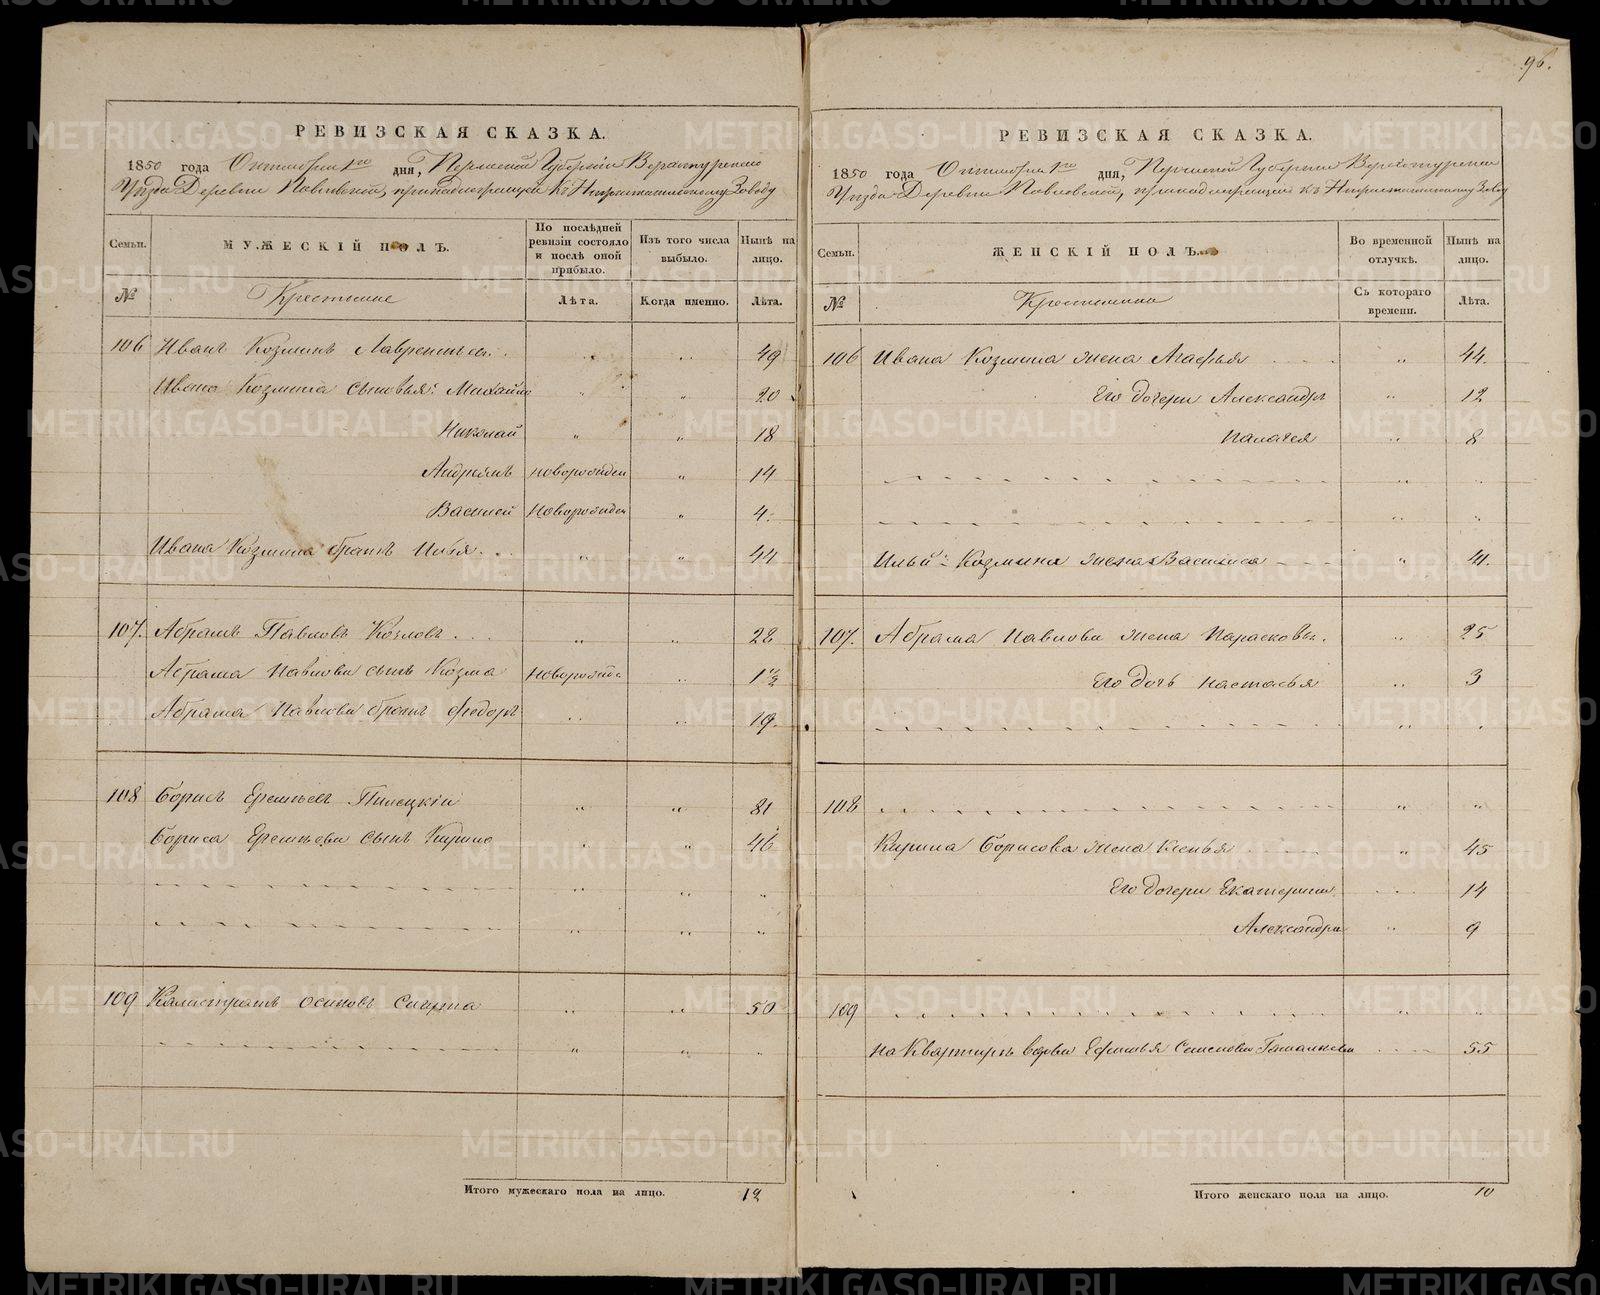 96.
РЕВИЗСКАЯ СКАЗКА.
1850 года Октября 1го дня, Пермской Губернiи Верхотурскаго
Уѣзда Деревни Павловской, принадлежащей къ Заводу
Семьи. МУЖЕСКIЙ ПОЛЪ. По послѣдней ревизiи состояло и послѣ оной прибыло. Изъ того числа выбыло. Нынѣ на лицо.
№ Крестьяне Лѣта. Когда именно. Лѣта.
106 Иванъ Козминъ Лаврентьевъ . . „ „ 49
Ивана Козмина сыновья: Михайло „ „ 20
Николай „ „ 18
Андреянъ новорожден „ 14
Василей Новорожден „ 4.
Ивана Козмина братъ Илья . . . „ „ 44
107. Абрамъ Павловъ Козловъ . . . „ „ 28
Абрама Павлова сынъ Козма Новорожде „ 1 1/2
Абрама Павлова братъ Федоръ „ „ 19.
108 Борисъ Еремѣевъ Пилецкiй „ „ 81
Бориса Еремѣева сынъ Кирило „ „ 46
„ „ „
„ „ „
109 Калистратъ Осиповъ „ „ 50
„ „ „
Итого мужескаго пола на лицо. 12
РЕВИЗСКАЯ СКАЗКА.
1850 года Октября 1го дня, Пермской Губернiи Верхотурскаго
Уѣзда Деревни Павловской, принадлежащей къ Заводу
Семьи. ЖЕНСКIЙ ПОЛЪ. Во временной отлучкѣ. Нынѣ на лицо.
№ Съ котораго времени. Лѣта.
106 Ивана Козмина жена Агафья . . . . „ 44.
Его дочери Александра „ 12
Палагея „ 8
„ „
„ „
Ильи Козмина жена Василиса „ 41.
107. Абрама Павлова жена Парасковья. „ 25
Его дочь Настасья „ 3
„ „
108 „ „
Кирила Борисова жена Ксенья „ 45
Его дочери Екатерина . . . 14
Александра „ 9
109 „ „
на Квартирѣ вдова Ефимья Семенова . . . 55
Итого женскаго пола на лицо. 10
METRIKI.GASO-URAL.RU